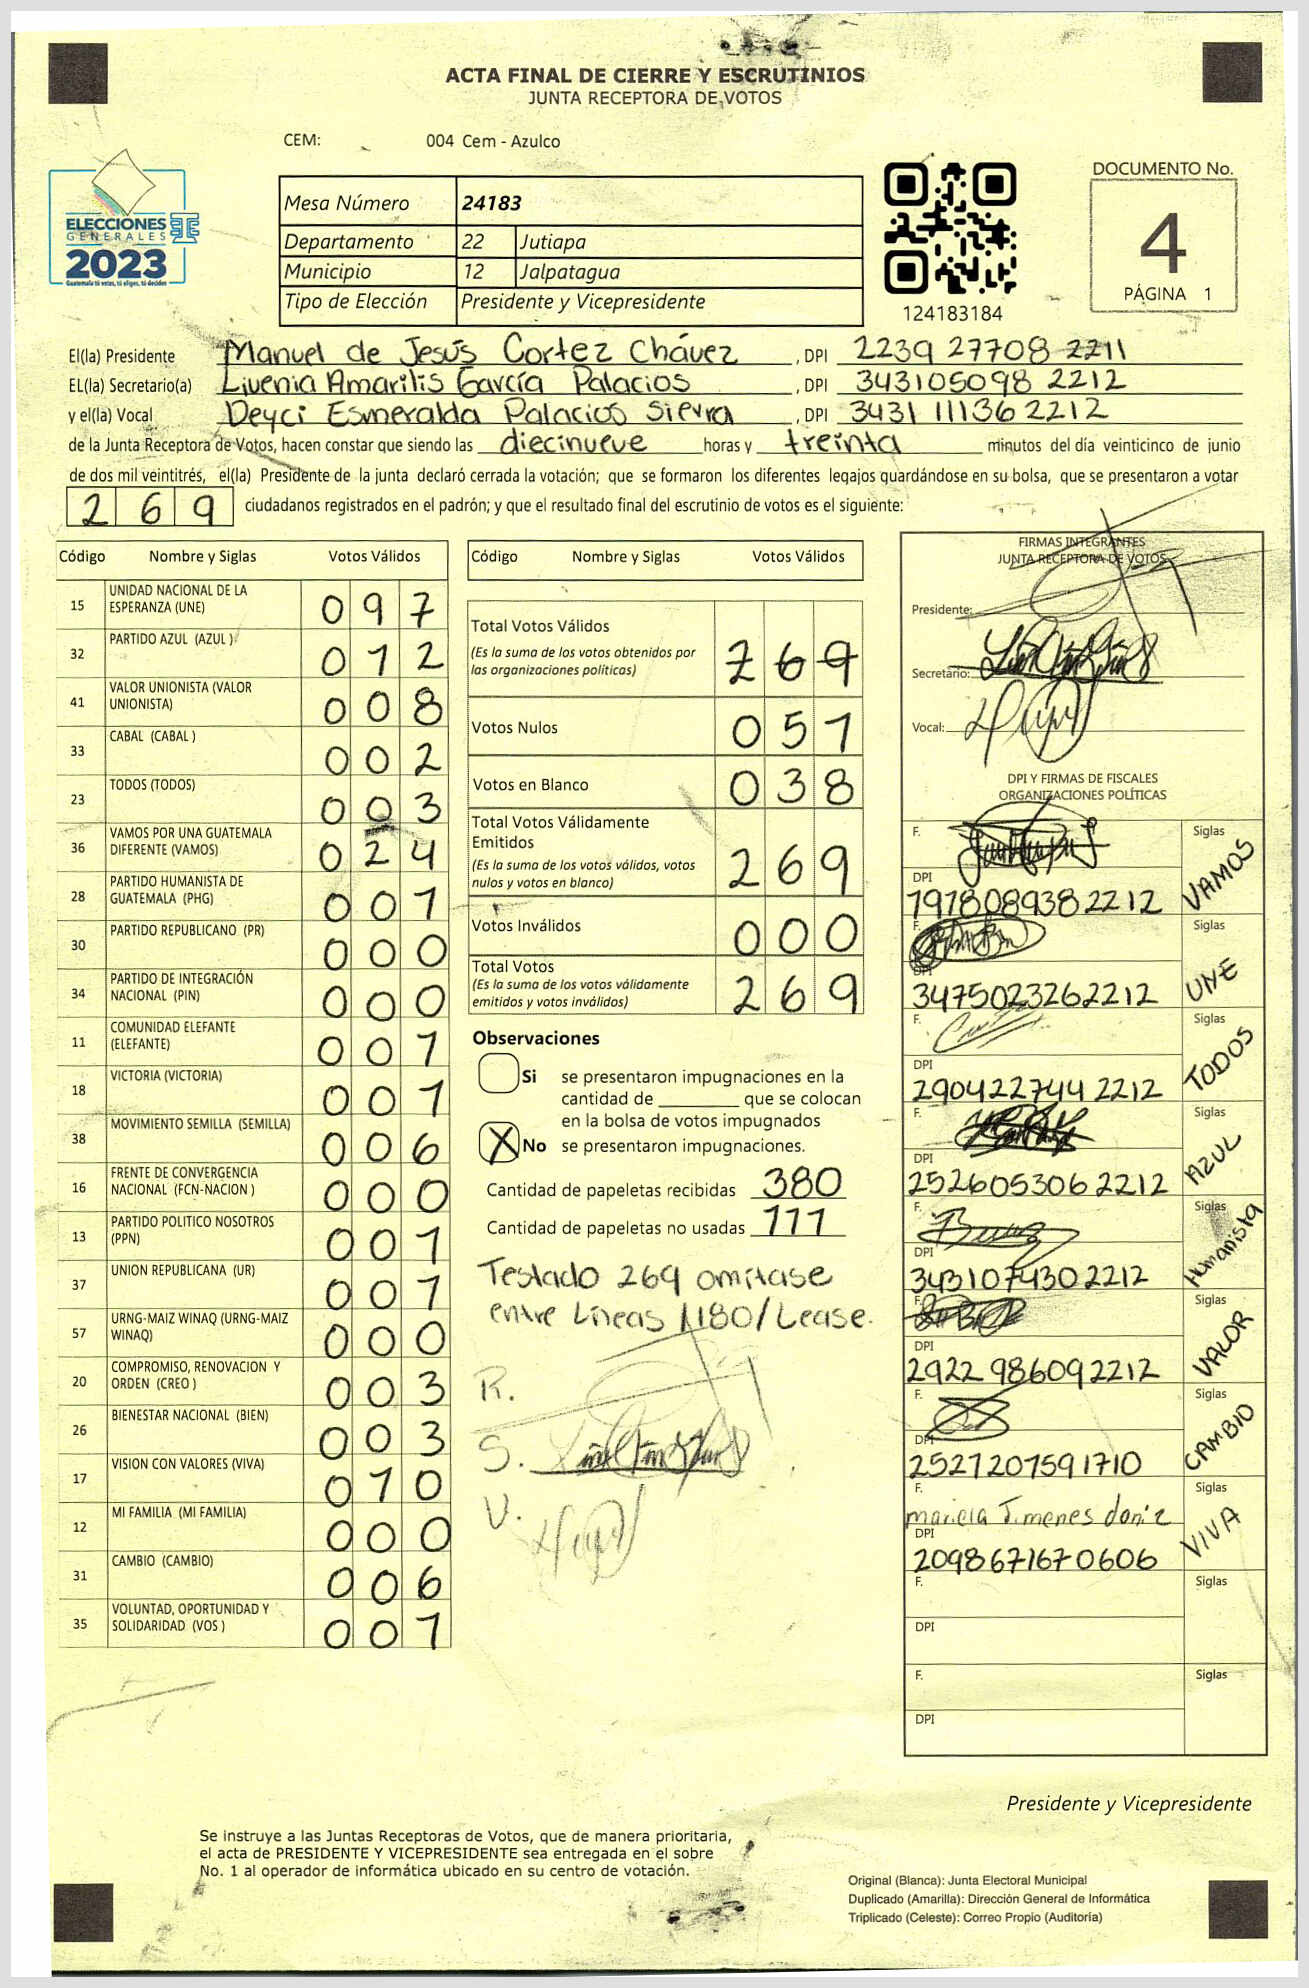 ACTA FINAL DE CIERRE Y ESCRUTINIOS
JUNTA RECEPTORA DE VOTOS
CEM: 004 Cem - Azulco
ELECCIONES
GENERALES
2023
Guatemala tú votas, tú eliges, tú decides
Mesa Número 24183
Departamento 22 Jutiapa
Municipio 12 Jalpatagua
Tipo de Elección Presidente y Vicepresidente
124183184
DOCUMENTO No.
4
PÁGINA 1
El(la) Presidente Manuel de Jesús Cortez Chávez , DPI 2239 27708 2211
EL(la) Secretario(a) Livenia Amarilis García Palacios , DPI 343105098 2212
y el(la) Vocal Deyci Esmeralda Palacios Sierra , DPI 3431 11136 2212
de la Junta Receptora de Votos, hacen constar que siendo las diecinueve horas y treinta minutos del día veinticinco de junio
de dos mil veintitrés, el(la) Presidente de la junta declaró cerrada la votación; que se formaron los diferentes legajos guardándose en su bolsa, que se presentaron a votar
269 ciudadanos registrados en el padrón; y que el resultado final del escrutinio de votos es el siguiente:
Código Nombre y Siglas Votos Válidos
15 UNIDAD NACIONAL DE LA ESPERANZA (UNE) 097
32 PARTIDO AZUL (AZUL ) 012
41 VALOR UNIONISTA (VALOR UNIONISTA) 008
33 CABAL (CABAL ) 002
23 TODOS (TODOS) 003
36 VAMOS POR UNA GUATEMALA DIFERENTE (VAMOS) 024
28 PARTIDO HUMANISTA DE GUATEMALA (PHG) 001
30 PARTIDO REPUBLICANO (PR) 000
34 PARTIDO DE INTEGRACIÓN NACIONAL (PIN) 000
11 COMUNIDAD ELEFANTE (ELEFANTE) 001
18 VICTORIA (VICTORIA) 001
38 MOVIMIENTO SEMILLA (SEMILLA) 006
16 FRENTE DE CONVERGENCIA NACIONAL (FCN-NACION ) 000
13 PARTIDO POLITICO NOSOTROS (PPN) 001
37 UNION REPUBLICANA (UR) 001
57 URNG-MAIZ WINAQ (URNG-MAIZ WINAQ) 000
20 COMPROMISO, RENOVACION Y ORDEN (CREO ) 003
26 BIENESTAR NACIONAL (BIEN) 003
17 VISION CON VALORES (VIVA) 010
12 MI FAMILIA (MI FAMILIA) 000
31 CAMBIO (CAMBIO) 006
35 VOLUNTAD, OPORTUNIDAD Y SOLIDARIDAD (VOS ) 001
Código Nombre y Siglas Votos Válidos
Total Votos Válidos
(Es la suma de los votos obtenidos por
las organizaciones politicas) 269
Votos Nulos 051
Votos en Blanco 038
Total Votos Válidamente
Emitidos
(Es la suma de los votos válidos, votos
nulos y votos en blanco) 269
Votos Inválidos 000
Total Votos
(Es la suma de los votos válidamente
emitidos y votos inválidos) 269
Observaciones
Si se presentaron impugnaciones en la
cantidad de ________ que se colocan
en la bolsa de votos impugnados
X No se presentaron impugnaciones.
Cantidad de papeletas recibidas 380
Cantidad de papeletas no usadas 111
Testado 269 omitase
entre Líneas /180/Lease.
S.
V.
FIRMAS INTEGRANTES
JUNTA RECEPTORA DE VOTOS
Presidente:
Secretario:
Vocal:
DPI Y FIRMAS DE FISCALES
ORGANIZACIONES POLÍTICAS
F. Siglas
DPI 1978089382212 VAMOS
F. Siglas
DPI 3475023262212 UNE
F. Siglas
DPI 290422744 2212 TODOS
F. Siglas
DPI 252605306 2212 AZUL
F. Siglas
DPI 3431074302212 Humanista
F. Siglas
DPI 2922 986092212 VALOR
F. Siglas
DPI 2521201591710 CAMBIO
F. mariela Jimenes Siglas
DPI 2098671670606 VIVA
F. Siglas
DPI
F. Siglas
DPI
Presidente y Vicepresidente
Se instruye a las Juntas Receptoras de Votos, que de manera prioritaria,
el acta de PRESIDENTE Y VICEPRESIDENTE sea entregada en el sobre
No. 1 al operador de informática ubicado en su centro de votación.
Original (Blanca): Junta Electoral Municipal
Duplicado (Amarilla): Dirección General de Informática
Triplicado (Celeste): Correo Propio (Auditoría)